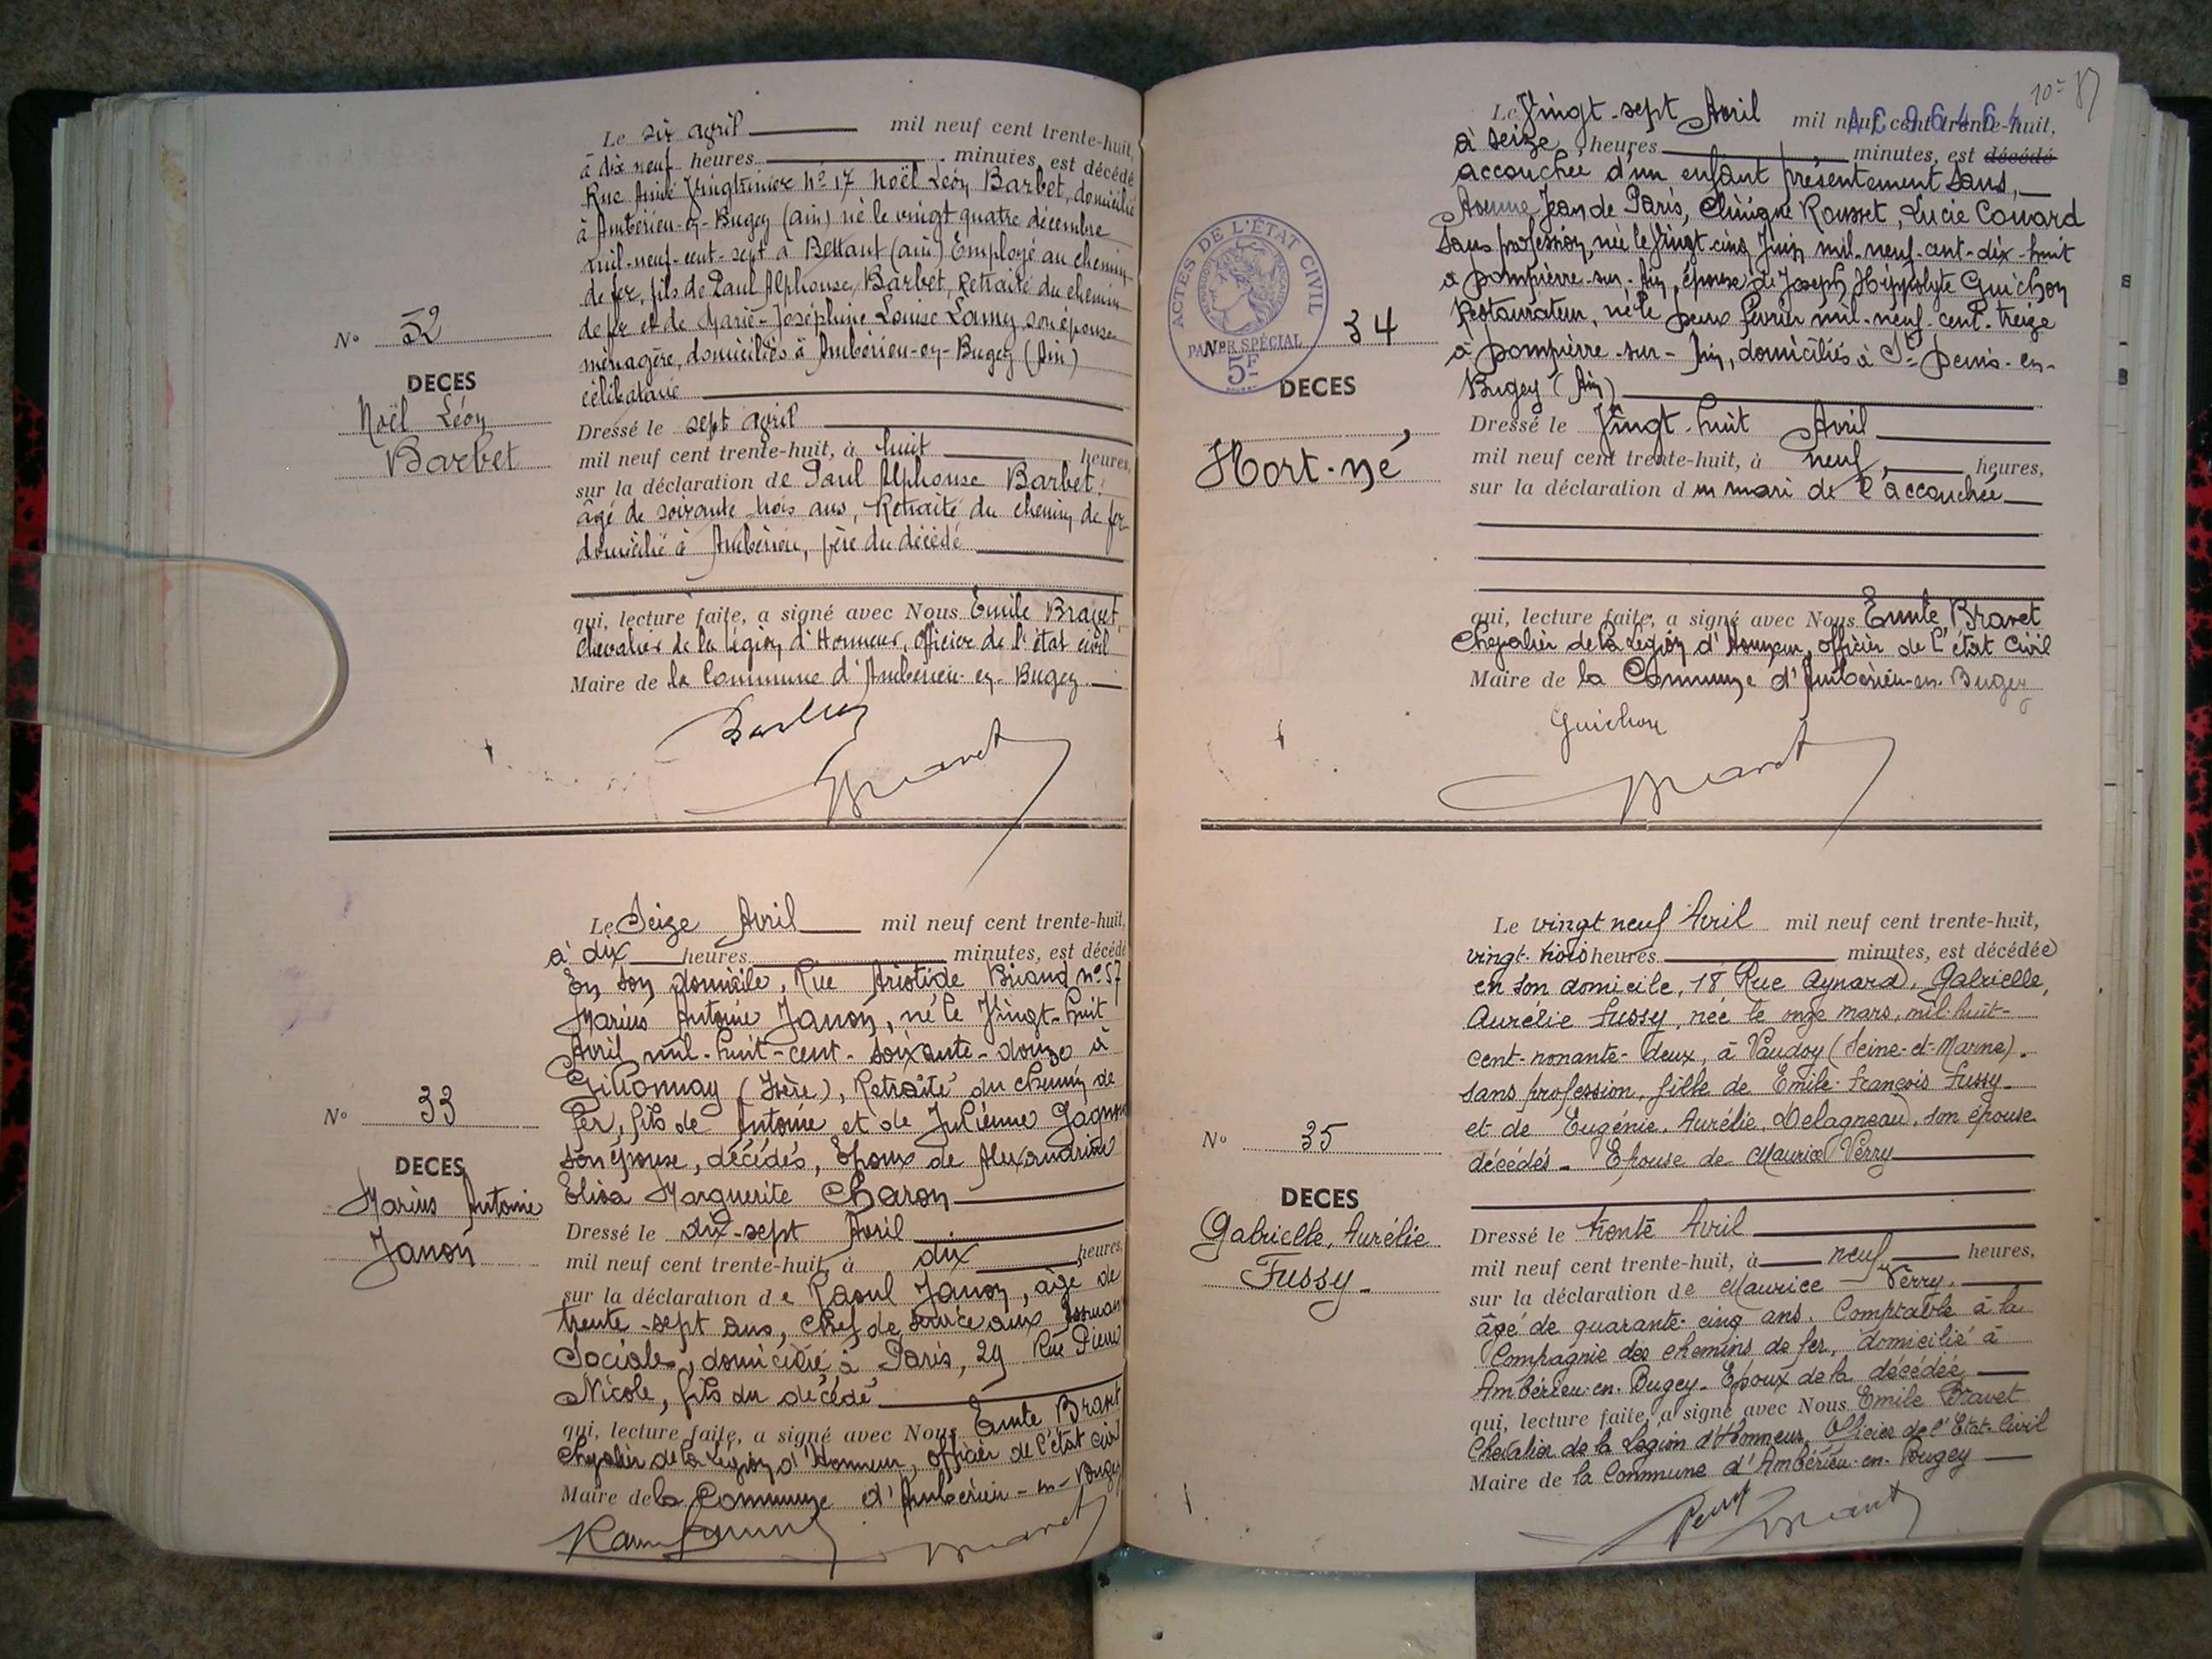 Le six avril mil neuf cent trente-huit,
à dix neuf heures minutes, est décédé
Rue Aimé Vingtrinier n° 17 Noël Léon Barbet, domicilié
à Ambérieu-en-Bugey (Ain) né le vingt quatre décembre
mil-neuf-cent-sept à Bettant (Ain) Employé au chemin
de fer, fils de Paul Alphonse Barbet, Retraité du chemin
de fer et de Marie-Joséphine Louise Lamy son épouse
ménagère, domiciliés à Ambérieu-en-Bugey (Ain)
célibataire
N° 32
DECES
Noël Léon
Barbet
Dressé le sept avril
mil neuf cent trente-huit, à huit heures,
sur la déclaration de Paul Alphonse Barbet,
âgé de soixante trois ans, Retraité du chemin de fer
domicilié à Ambérieu, père du décédé
qui, lecture faite, a signé avec Nous Emile Bravet,
Chevalier de la Légion d'Honneur, officier de l'état civil
Maire de la Commune d'Ambérieu-en-Bugey
Bravet
Le Seize Avril mil neuf cent trente-huit,
à dix heures minutes, est décédé
En son domicile, Rue Aristide Briand n° 57
Marius Antoine Janon, né le Vingt-huit
Avril mil-huit-cent-soixante-douze à
Gillonnay (Isère), Retraité du chemin de
fer, fils de Antoine et de Julienne Gagnon
son épouse, décédés, Epoux de Alexandrine
Elisa Marguerite Charon
N° 33
DECES
Marius Antoine
Janon
Dressé le dix-sept Avril
mil neuf cent trente-huit, à dix heures,
sur la déclaration de Raoul Janon, âgé de
trente-sept ans, Chef de service aux Assuran
Sociales, domicilié à Paris, 29 Rue Pierre
Nicole, fils du décédé
qui, lecture faite, a signé avec Nous Emile Bravet
Chevalier de la Légion d'Honneur, officier de l'état civil
Maire de la Commune d'Ambérieu-en-Bugey
Bravet
10e 87
AC 96464
Le Vingt-sept Avril mil neuf cent trente-huit,
à seize heures minutes, est décédé
accouchée d'un enfant présentement sans,
Avenue Jean de Paris, Clinique Rousset, Lucie Couard
Sans profession, née le Vingt-cinq Juin mil-neuf-cent-dix-huit
à Dompierre-sur-Ain, épouse de Joseph Hippolyte Guichon
Restaurateur, né le deux février mil-neuf-cent-treize
à Dompierre-sur-Ain, domiciliés à St-Denis-en-
Bugey (Ain)
ACTES DE L'ÉTAT CIVIL
PAPIER SPÉCIAL
5F
N° 34
DECES
Mort-né
Dressé le Vingt-huit Avril
mil neuf cent trente-huit, à neuf, heures,
sur la déclaration du mari de l'accouchée
qui, lecture faite, a signé avec Nous Emile Bravet
Chevalier de la Légion d'Honneur, officier de l'état Civil
Maire de la Commune d'Ambérieu-en-Bugey
Guichon
Bravet
Le vingt neuf Avril mil neuf cent trente-huit,
vingt-trois heures minutes, est décédée
en son domicile, 18 Rue Aynard, Gabrielle,
Aurélie Fussy, née le onze mars, mil-huit-
cent-nonante-deux, à Vaudoy (Seine-et-Marne).
sans profession, fille de Emile-François Fussy
et de Eugénie, Aurélie, Delagneau, son épouse
décédés - Epouse de Maurice Verry
N° 35
DECES
Gabrielle, Aurélie
Fussy-
Dressé le trente Avril
mil neuf cent trente-huit, à neuf heures,
sur la déclaration de Maurice Verry,
âgé de quarante-cinq ans, Comptable à la
Compagnie des chemins de fer, domicilié à
Ambérieu-en-Bugey-Epoux de la décédée
qui, lecture faite, a signé avec Nous Emile Bravet
Chevalier de la Légion d'Honneur, Officier de l'Etat-Civil
Maire de la Commune d'Ambérieu-en-Bugey
Bravet